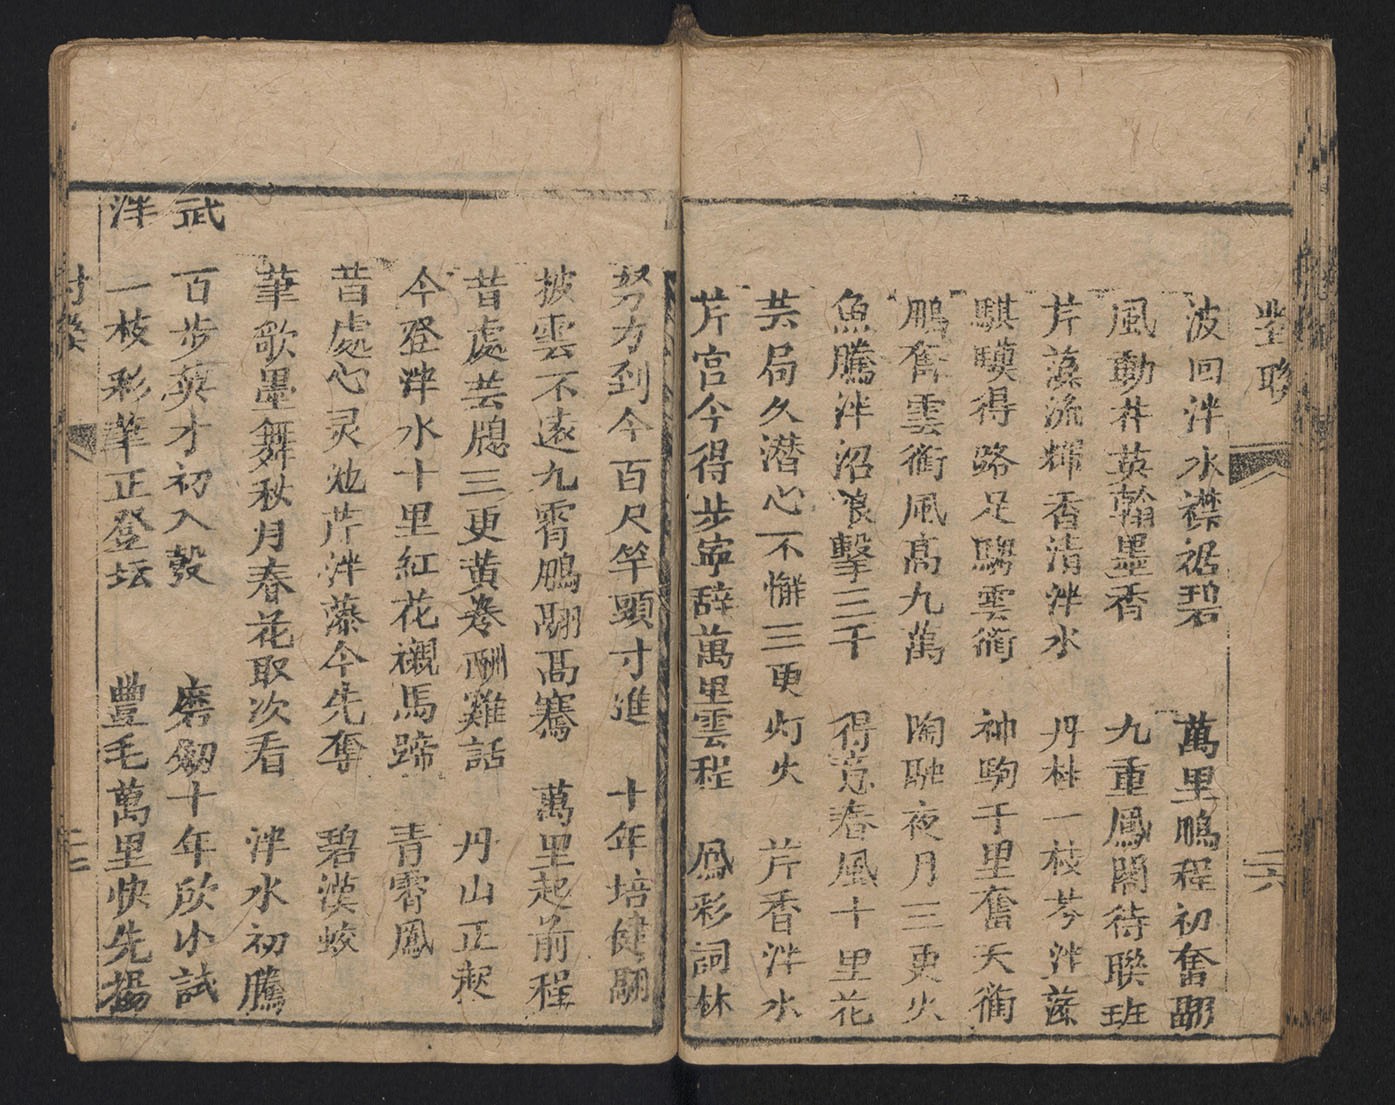 聯
二六
波回泮水襟裾碧　萬里鵬程初奮翮
風動芹英翰墨香　九重鳳闕待聯班
芹藻流輝香清泮水　丹桂一枝芩泮藻
騏驥得路足騁雲衢　神駒千里奮天衢
鵬奮雲衢風高九萬　陶融夜月三更火
魚騰泮沼浪擊三千　得意春風十里花
芸局久潜心不懈三更灯火　芹香泮水
芹宮今得步寧辞萬里雲程　鳳彩詞林
努力到今百尺竿頭寸進　十年培健翮
披雲不遠九霄鵬翮高騫　萬里起前程
昔處芸牕三更黄卷酬雞話　丹山正起
今登泮水十里紅花襯馬蹄　青霄鳳
昔處心灵池芹泮藻今先奪　碧漢蛟
筆歌墨舞秋月春花取次看　泮水初騰
武　百步英才初入彀　磨劒十年欣小試
泮　一枝彩筆正登坛　豊毛萬里快先揚